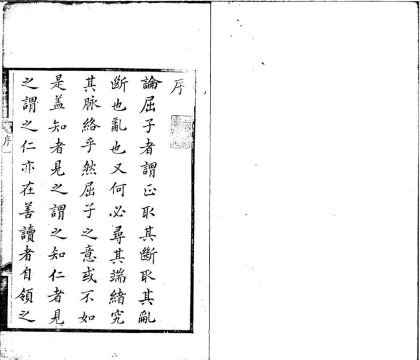 序
論屈子者謂正取其斷取其亂
斷也亂也又何必尋其端緒究
其脉絡乎然屈子之意或不如
是蓋知者見之謂之知仁者見
之謂之仁亦在善讀者自領之
序